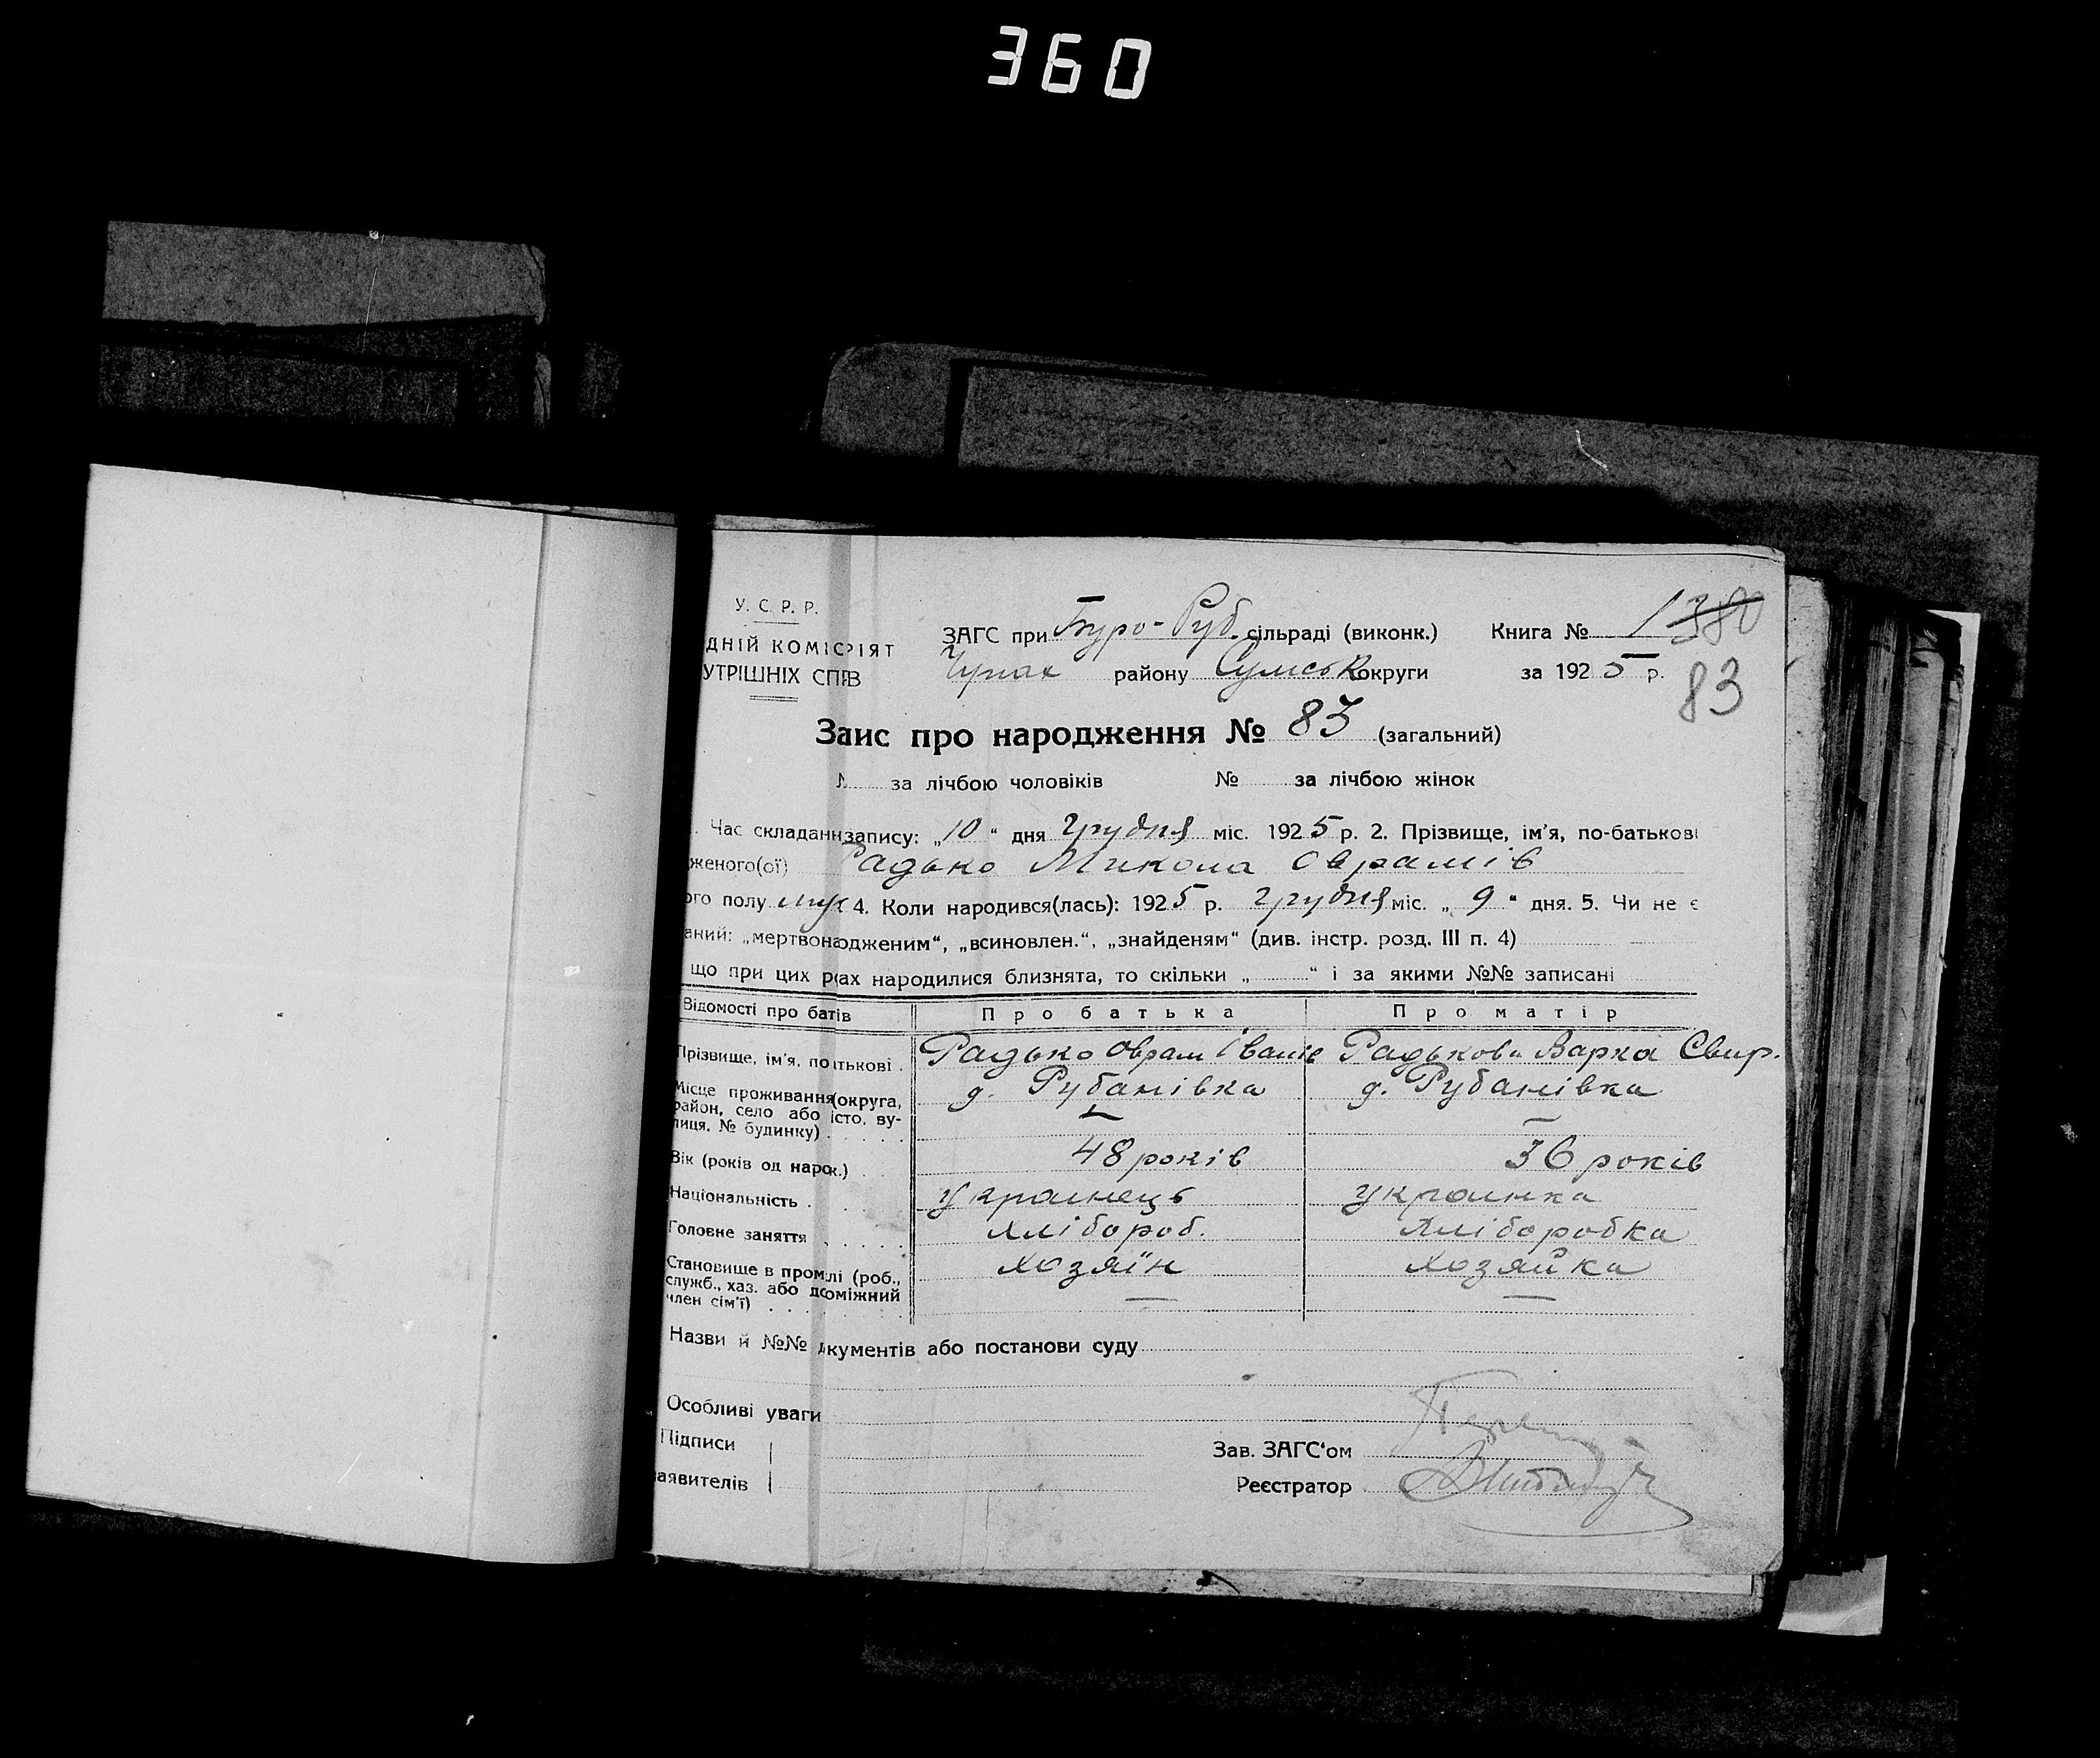 360
У. С. Р. Р.
ДНІЙ КОМІСРІЯТ
УТРІШНІХ СПРВ
ЗАГС при Буро-Руб. сільраді (виконк.) Книга № 1 380
району Сумськ округи за 1925 р.
83
Запис про народження № 83 (загальний)
за лічбою чоловіків № за лічбою жінок
Час складання запису: „10“ дня Грудня міс. 1925 р. 2. Прізвище, ім'я, по-батькові
женого(ої) Радько Микола Оврамів
ого полу муж 4. Коли народився(лась): 1925 р. Грудня міс. „9“ дня. 5. Чи не є
аний: „мертвонародженим“, „всиновлен.“, „знайденям“ (див. інстр. розд. III п. 4)
що при цих родах народилися близнята, то скільки „ “ і за якими №№ записані
Відомості про батьків Про батька Про матір
Прізвище, ім'я, по батькові . Радько Оврам Іванів Радькова Варка Свир.
Місце проживання (округа, район, село або місто, вулиця. № будинку) . . . . . д. Рубанівка д. Рубанівка
Вік (років од народж.) 48 років 36 років
Національність . українець українка
Головне заняття . . . . . хлібороб. хліборобка
Становище в промислі (роб., служб., хаз. або допоміжний член сім'ї) . . . хозяїн хозяйка
Назви й №№ документів або постанови суду
Особливі уваги
Підписи
Зав. ЗАГС'ом
заявителів
Реєстратор